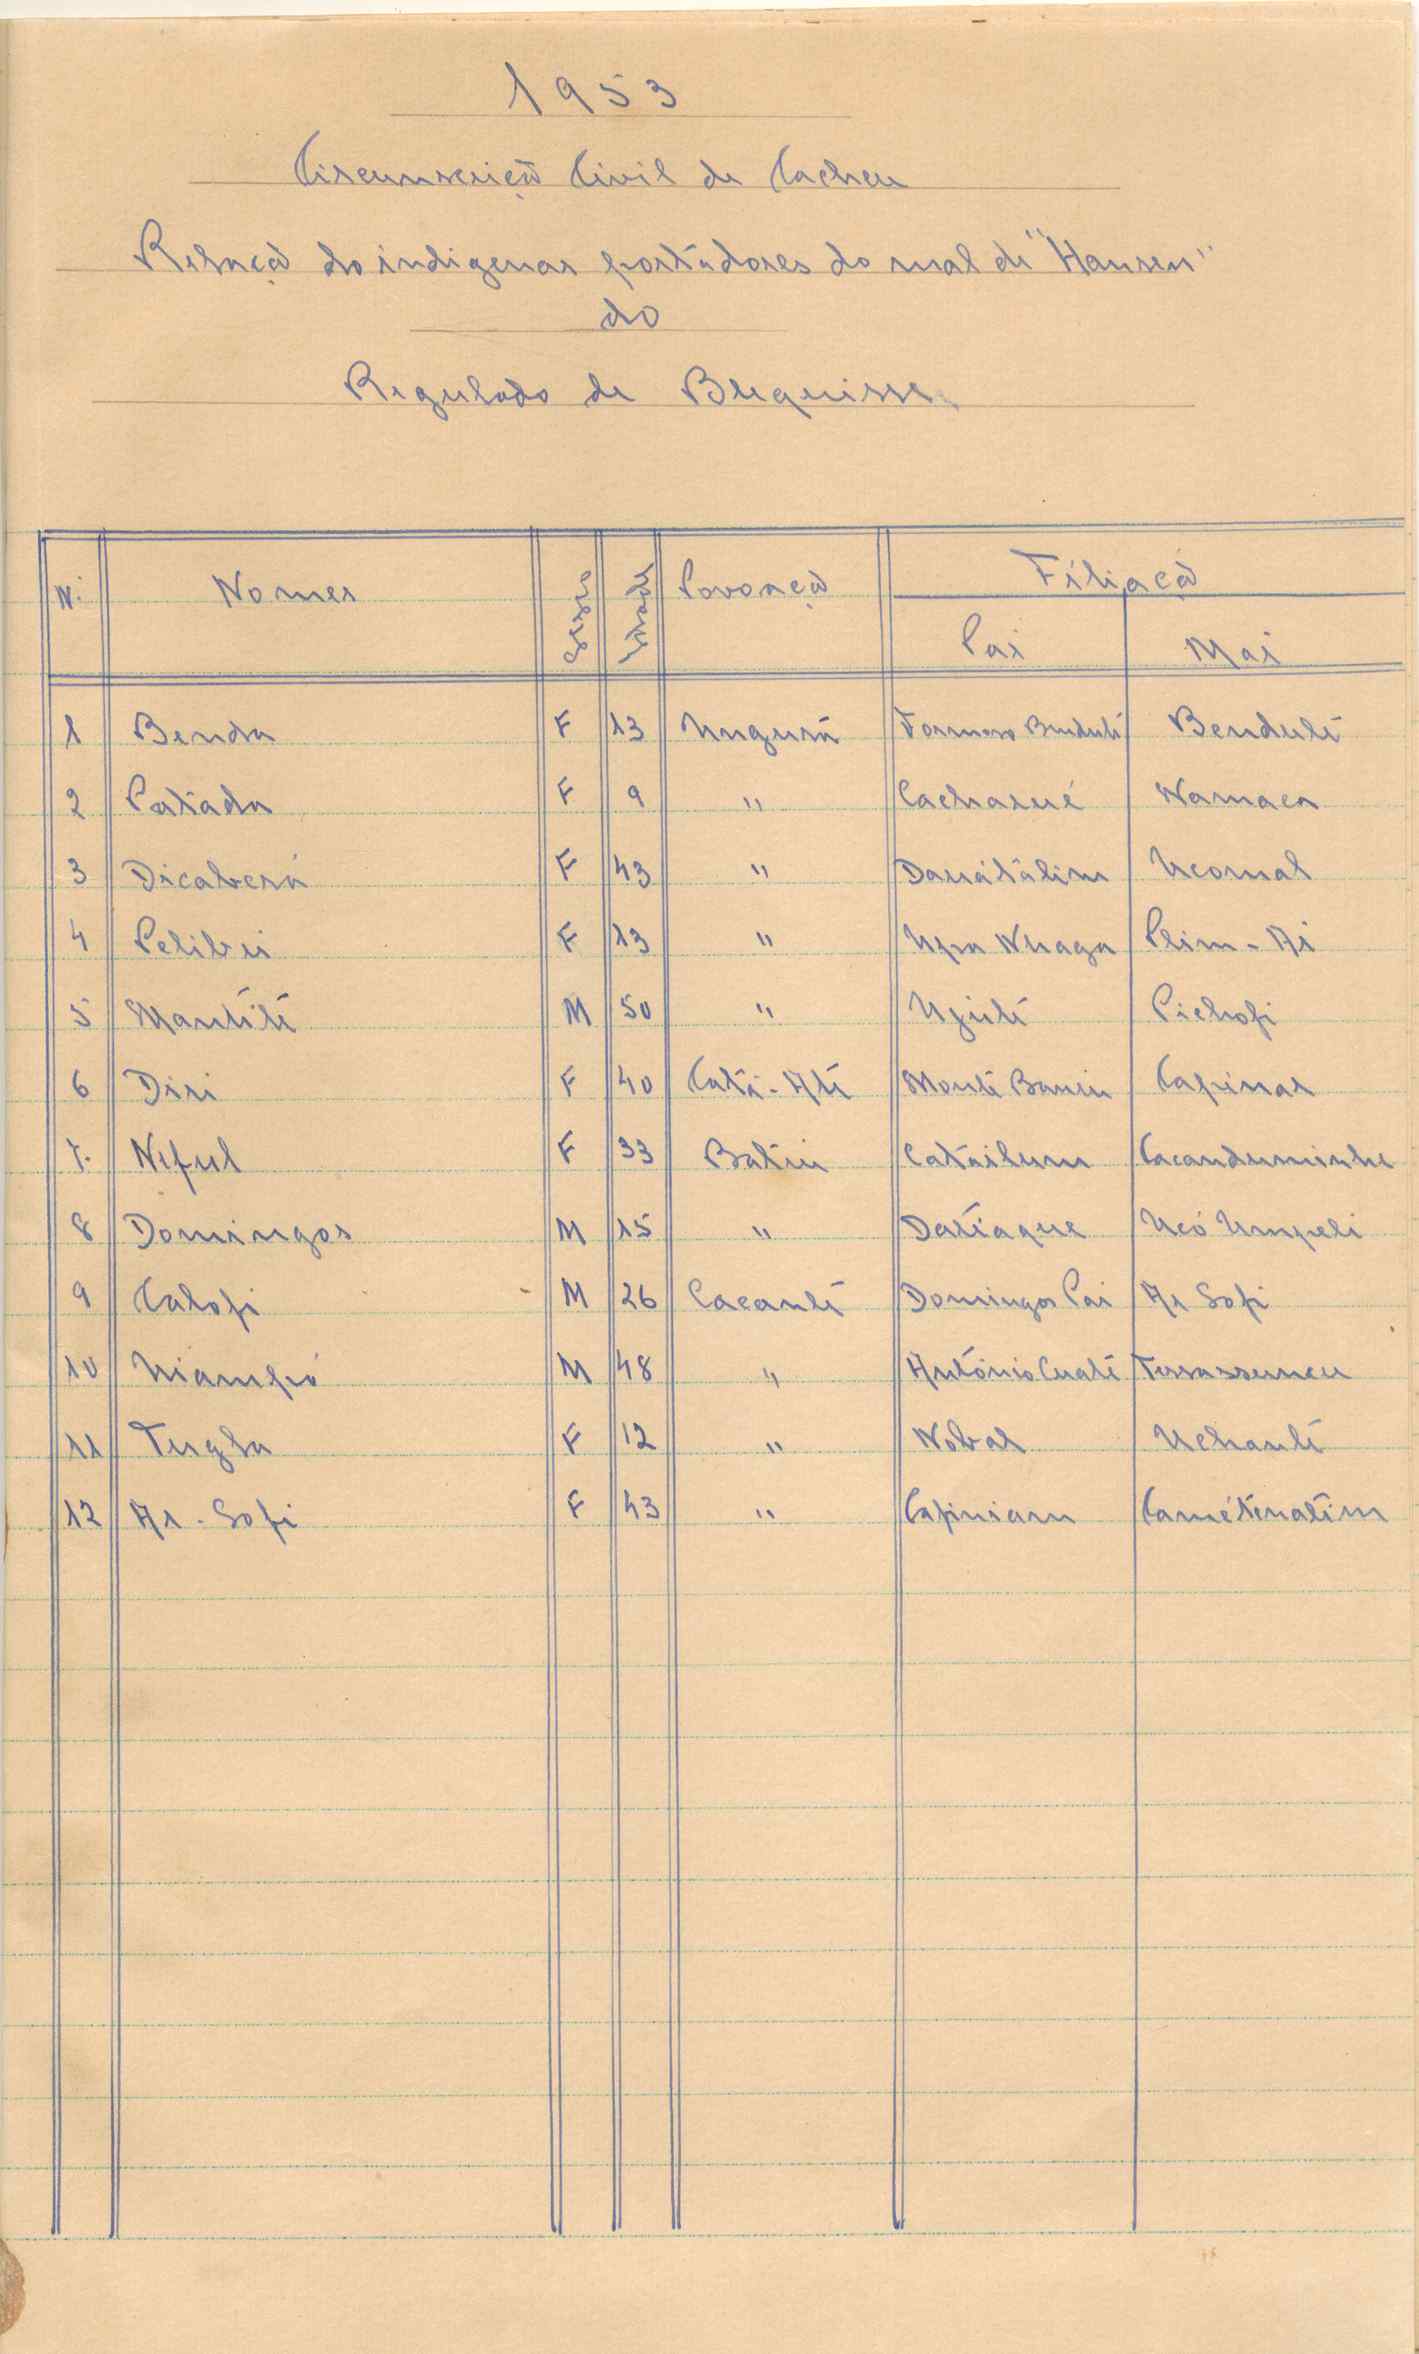 1953
Circunscriçã Civil de Cacheu
Relaçã do indigenas portadores do mal de "Hansen"
do
Regulado de Brequisse
N. Nomes Sexo Idade Povoaçã Filiaçã
Pai Mai
1 Benda F 13 Ungurá Formoso Bendulé Bendulé
2 Catada F 9 " Cachasué Namaca
3 Dicaberá F 43 " Dauátálim Ucomal
4 Pelibei F 13 " Upa Nhaga Plim-Ai
5 Mantité M 50 " Ujuté Pichofi
6 Diri F 40 Catá-Até Monté Baniu Capinar
7. Niful F 33 Batiu Catáilum Cacanduminhe
8 Domingos M 15 " Datiaque Ucó Umpeli
9 Calofi M 26 Cacanté Domingos Pai As Sofi
10 Niampó M 48 " António Cuaté Terrassuncu
11 Tugla F 12 " Nobar Uchanté
12 As-Sofi F 43 " Capiniam Camétenatim